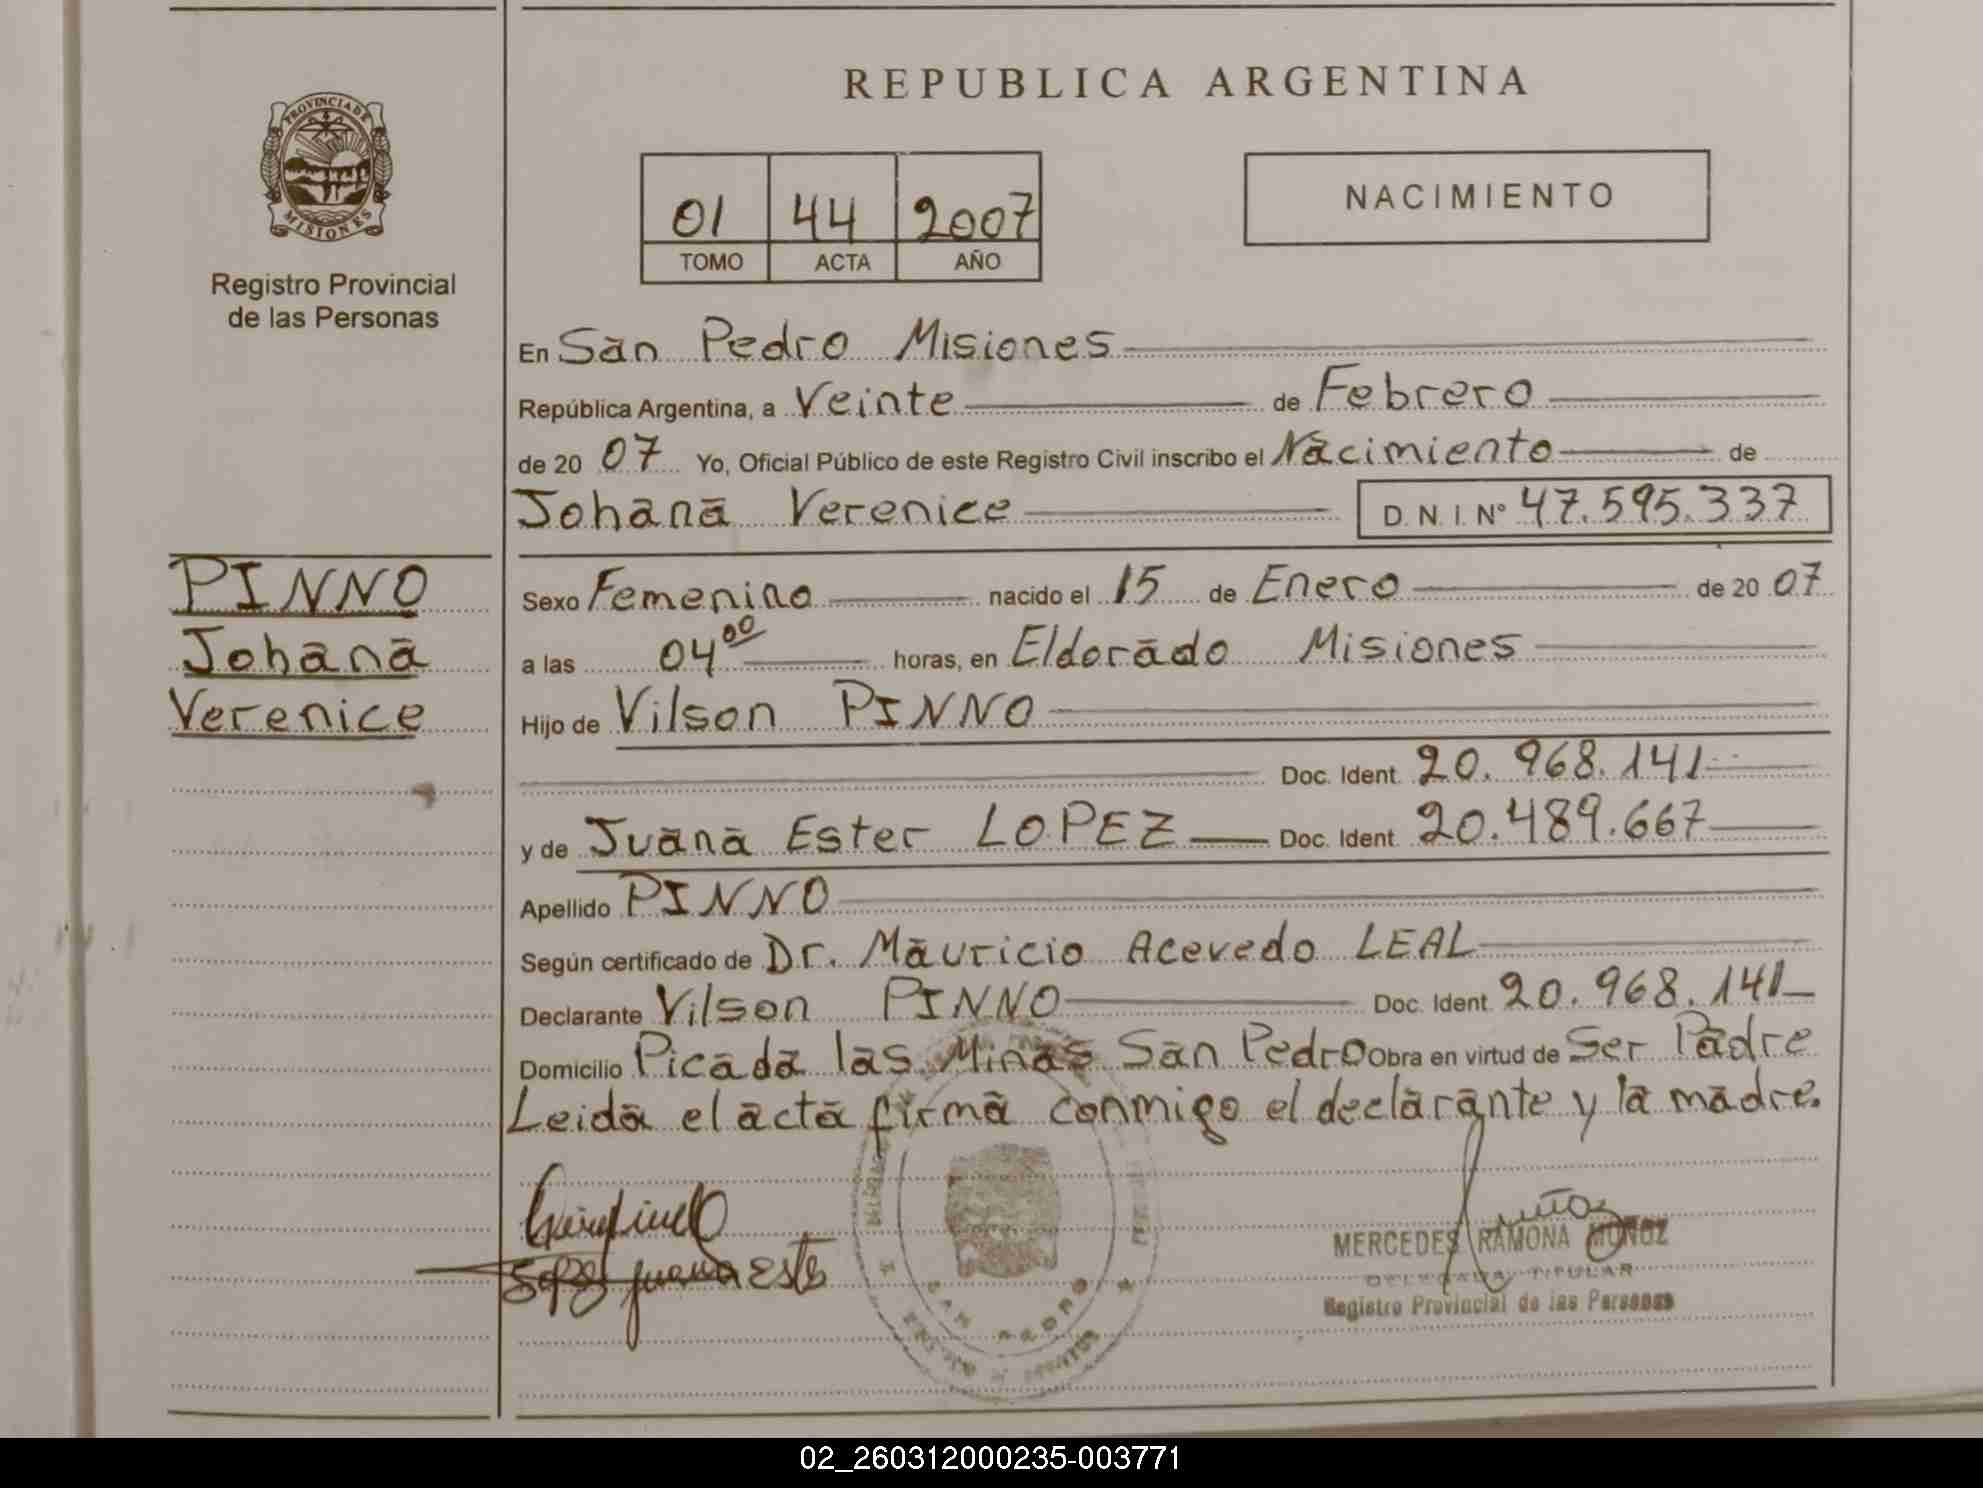 REPUBLICA ARGENTINA
PROVINCIA DE
MISIONES
Registro Provincial
de las Personas
01 44 2007
TOMO ACTA AÑO
NACIMIENTO
En San Pedro Misiones
República Argentina, a Veinte de Febrero
de 20 07 Yo, Oficial Público de este Registro Civil inscribo el Nacimiento de
Johana Verenice D. N. I. Nº 47.595.337
PINNO
Johana
Verenice
Sexo Femenino nacido el 15 de Enero de 20 07
a las 04 00 horas, en Eldorado Misiones
Hijo de Vilson PINNO
Doc. Ident. 20.968.141
y de Juana Ester LOPEZ Doc. Ident. 20.489.667
Apellido PINNO
Según certificado de Dr. Mauricio Acevedo LEAL
Declarante Vilson PINNO Doc. Ident. 20.968.141
Domicilio Picada las Minas San Pedro Obra en virtud de Ser Padre
Leida el acta firma conmigo el declarante y la madre.
Lopez Juana Este
MERCEDES RAMONA MUÑOZ
DELEGADA TITULAR
Registro Provincial de las Personas
SAN PEDRO
02_260312000235-003771